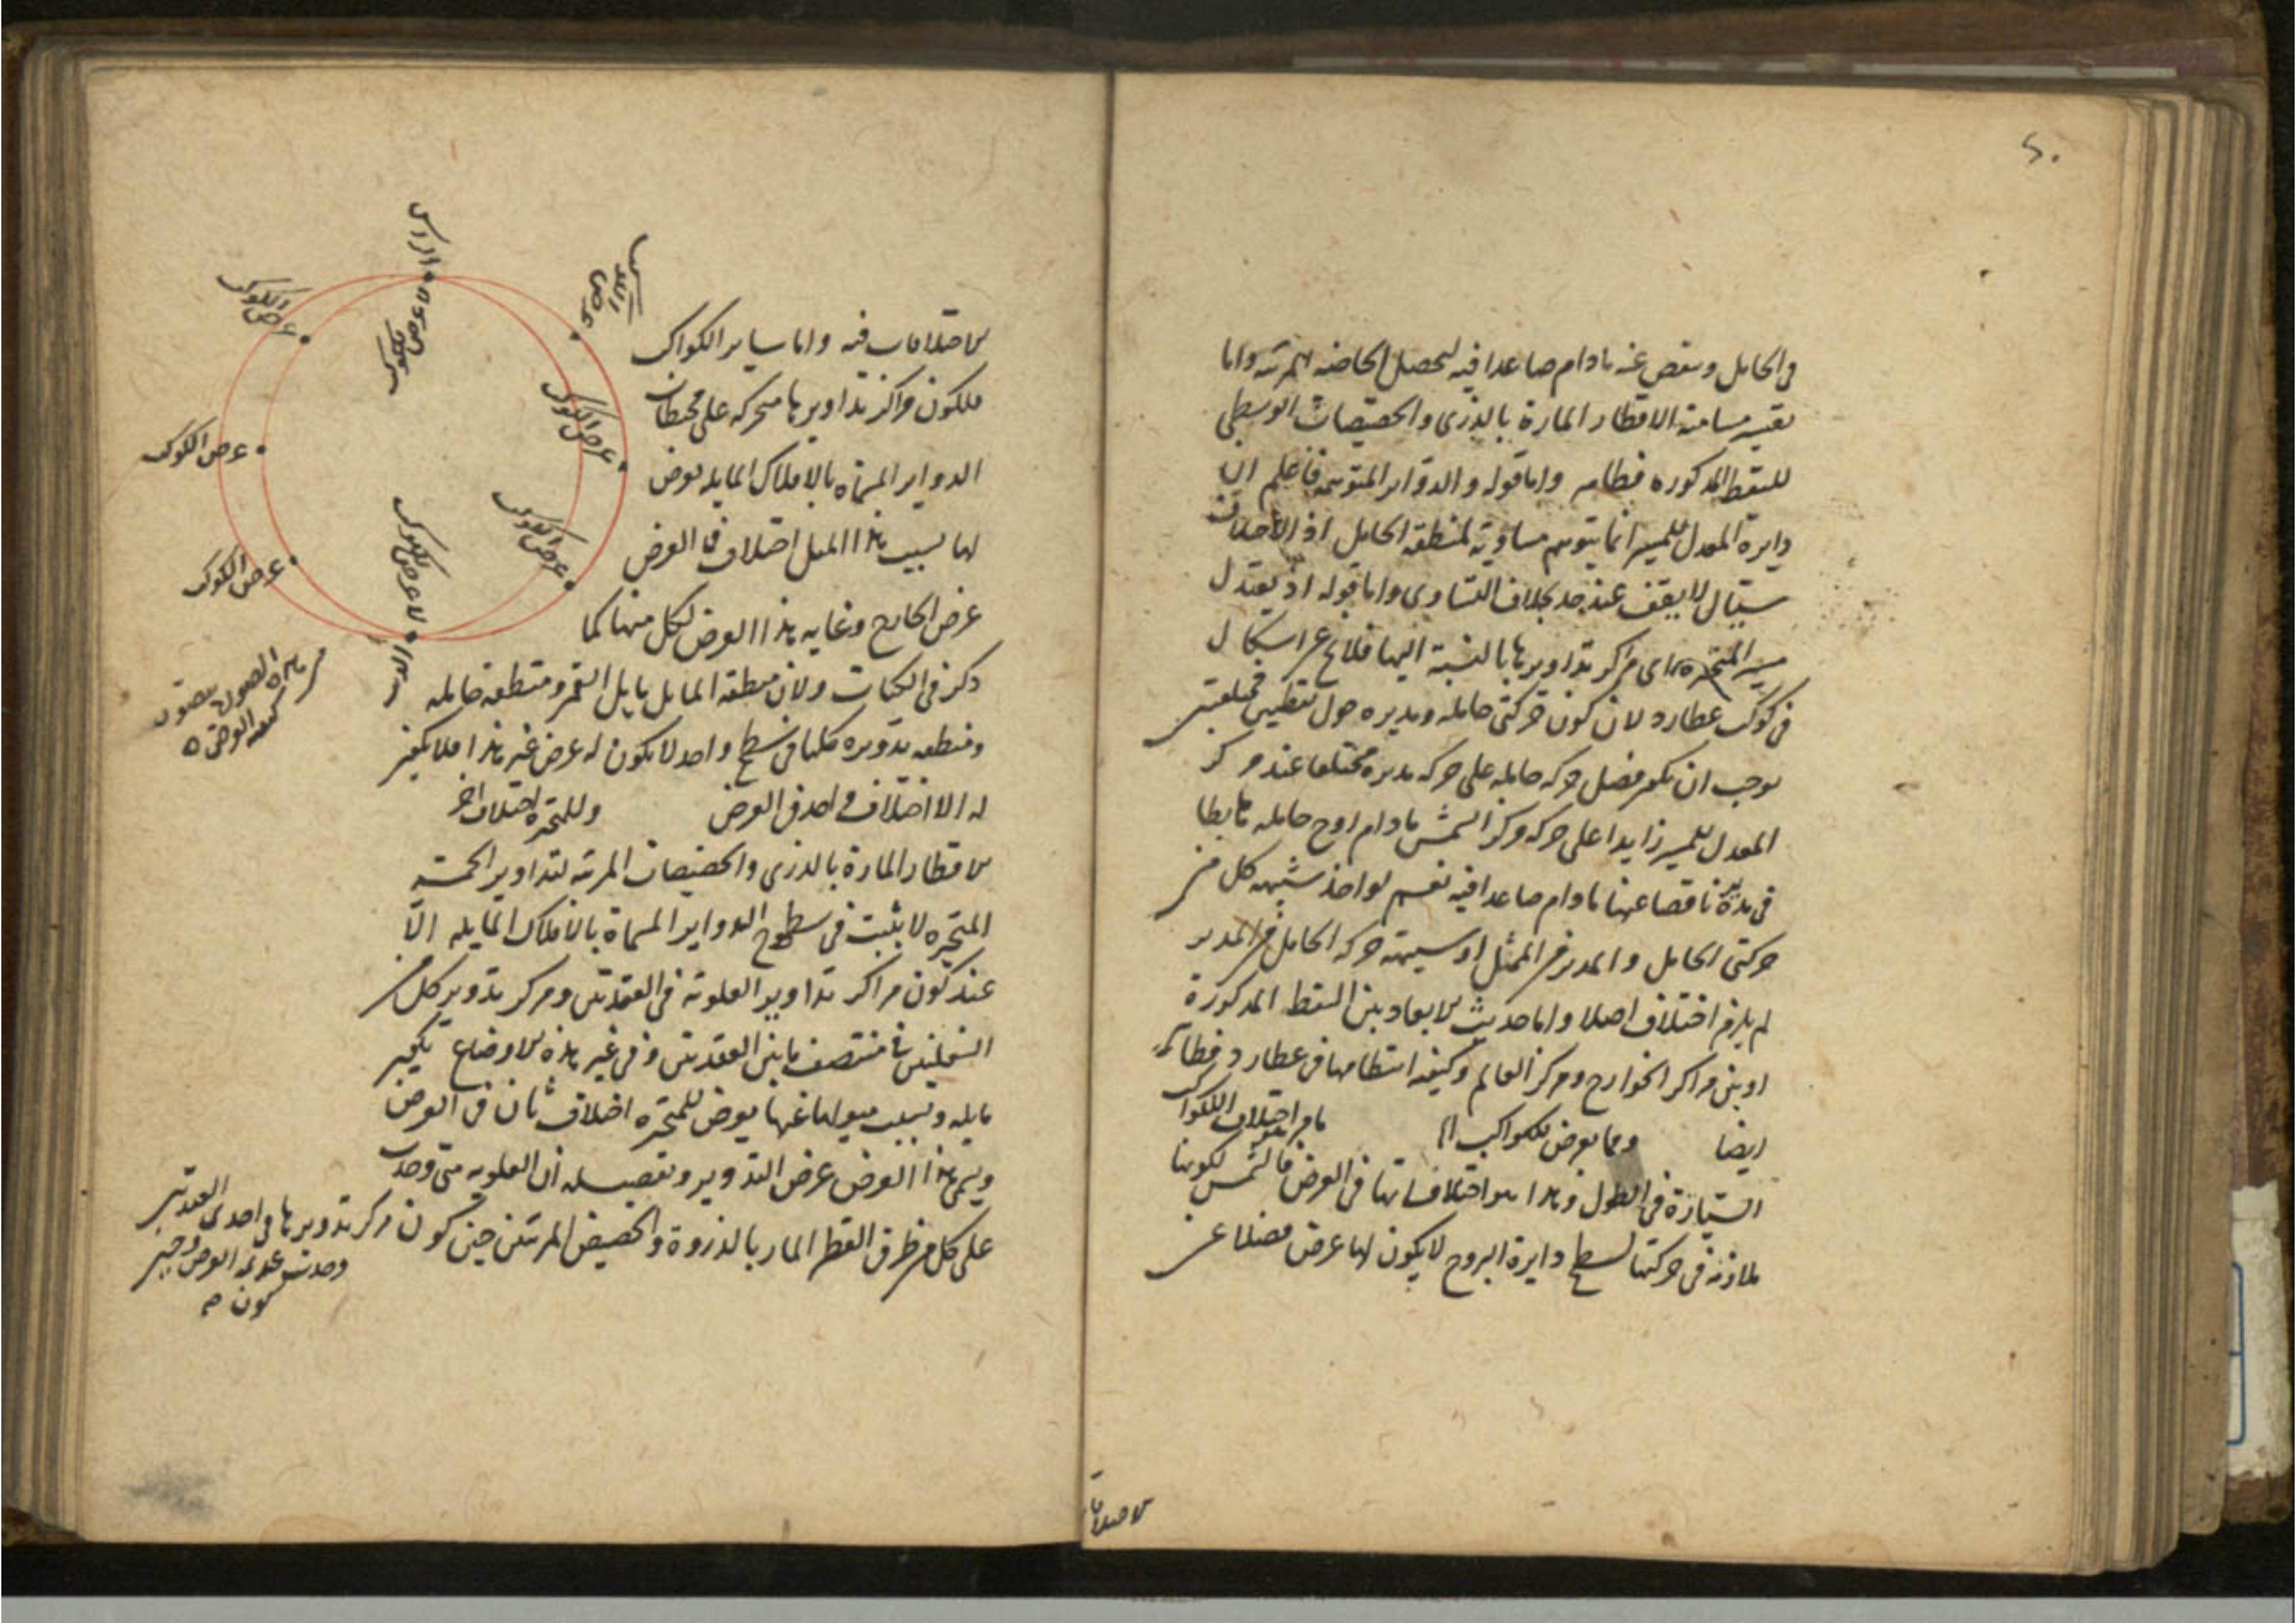 ٢٠
في الحامل وينقص عنه مادام صاعدا فيه ليحصل الحاصة المرئية واما
تفسير مسامتة الاقطار المارة بالذرى والحضيضات الوسطى
للنقط المذكورة فظاهر واما قوله والدواير المتوهمة فاعلم ان
دايرة المعدل للمسير انما يتوهم مساوية لمنطقة الحامل اذ الاختلاف
سيال لا يقف عند حد بخلاف التساوى واما قوله اذ يعتدل
مسير المتحيرة اى مراكز تداويرها بالنسبة اليها فلا يخ عن اشكال
في كوكب عطارد لان كون حركتى حامله ومديره حول نقطتين مختلفتين
يوجب ان يكون فضل حركة حامله على حركة مديره مختلفا عند مركز
المعدل للمسير زايدا على حركة مركز الشمس مادام اوج حامله هابطا
في مديره ناقصا عنها مادام صاعدا فيه نعم لو اخذ شبيهه كل من
حركتى الحامل والمدير من الممثل او شبيهة حركة الحامل من المدير
لم يلزم اختلاف اصلا واما حديث الابعاد بين النقط المذكورة
او بين مراكز الخوارج ومركز العالم وكيفية انتظامها في عطارد فظاهر
ايضا ومما يعرض للكواكب مامر اختلاف الكواكب
السيارة في الطول وهذا هو اختلافاتها في العرض فالشمس لكونها
ملازمة في حركتها لسطح دايرة البروج لا يكون لها عرض فضلا عن
الاختلافات
الاختلافات فيه واما ساير الكواكب
فلكون مراكز تداويرها متحركة على محيطات
الدواير المسماة بالافلاك المايلة يعرض
لها بسبب هذا الميل اختلاف في العرض
عرض الخارج وغاية هذا العرض لكل منها كما
ذكر في الكتاب ولان منطقة المايل القمر ومنطقة حامله
ومنطقة تدويره كلها في سطح واحد لا يكون له عرض غير هذا فلا يكون
له الا اختلاف واحد في العرض وللمتحيرة اختلاف اخر
الاقطار المارة بالذرى والحضيضات المرئية لتداوير الخمسة
المتحيرة لا يثبت في سطوح الدواير المسماة بالافلاك المايلة الا
عند كون مراكز تداوير العلوية في العقدتين ومركز تدوير كل من
السفليين في منتصف ما بين العقدتين وفي غير هذه الاوضاع تكون
مايلة وبسبب ميولها عنها يعرض للمتحيرة اختلاف ثان في العرض
ويسمى هذا العرض عرض التدوير وتفصيله ان العلوية متى وجدت
على كل من طرفى القطر المار بالذروة والحضيض المرئيين حين كون مركز تدويرها في احدى العقدتين
وجدت عديمة العرض وحين
كون
الراس
لا عرض للكوكب
عرض الكوكب
عرض الكوكب
عرض الكوكب
عرض الكوكب
عرض الكوكب
عرض الكوكب
لا عرض للكوكب
الذنب
من هذه الصورة يتصور
كيفية العرض